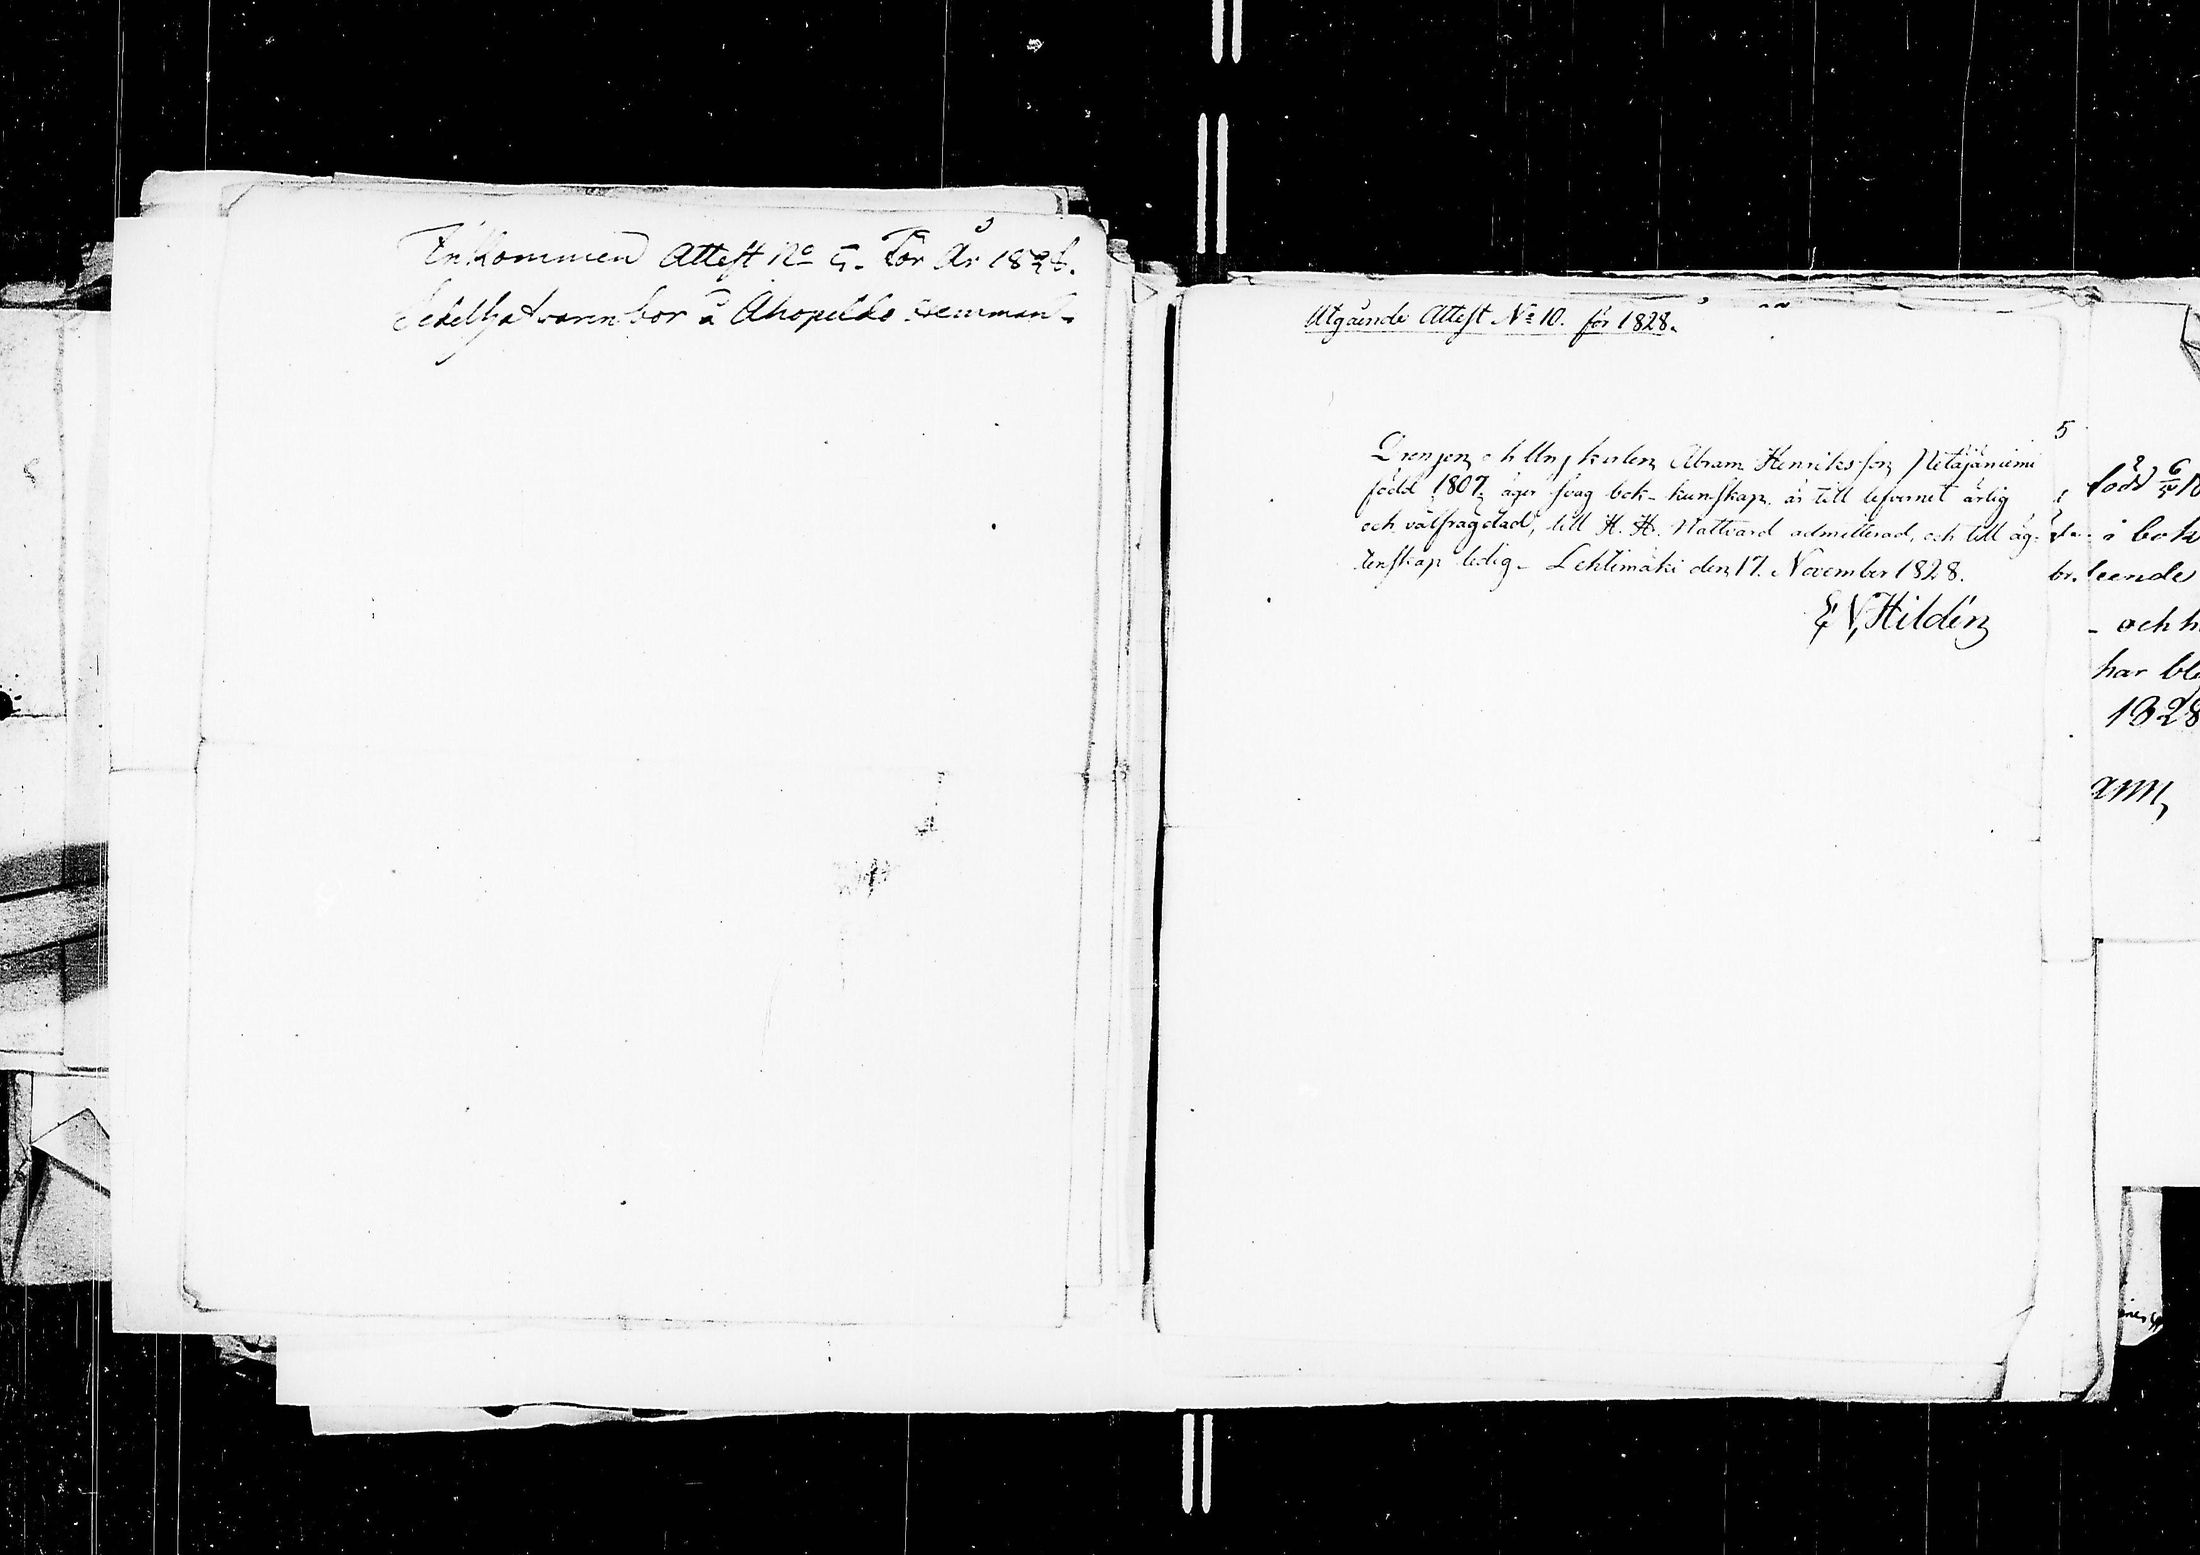 Inkommen Attest No 5. För År 1828.
Sedelhafvaren bor å Ahopelto Hemman.
Utgående Attest No 10. för 1828.
Drengen och Ungkarlen Abram Henriksson Petäjäniemi
född 1807, äger svag bok-kunskap, är till lefvernet ärlig
och välfrägdad, till H. H. Nattvard admitterad, och till äg-
tenskap ledig - Lehtimäki den 17. November 1828.
Hildén
5
född
i bok
och
har
1828